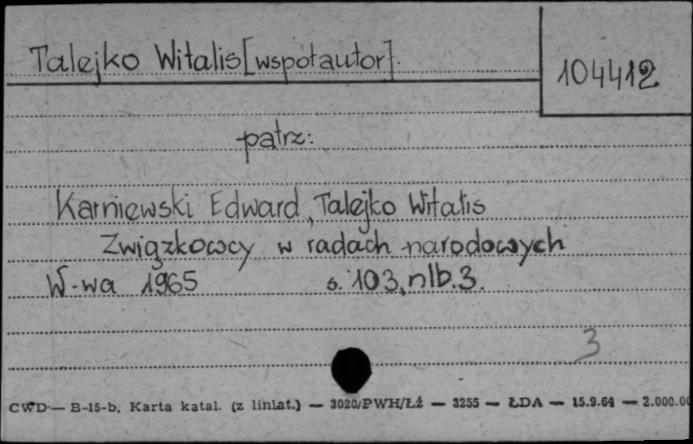 Talejko Witalis [współautor].
104412
patrz:
Karniewski Edward, Talejko Witalis
Związkowcy w radach narodowych
W-wa 1965 s. 103, nlb. 3.
3
CWD — B-15-b. Karta katal. (z liniat.) — 3020/PWH/Łź — 3255 — ŁDA — 15.9.64 — 2.000.00